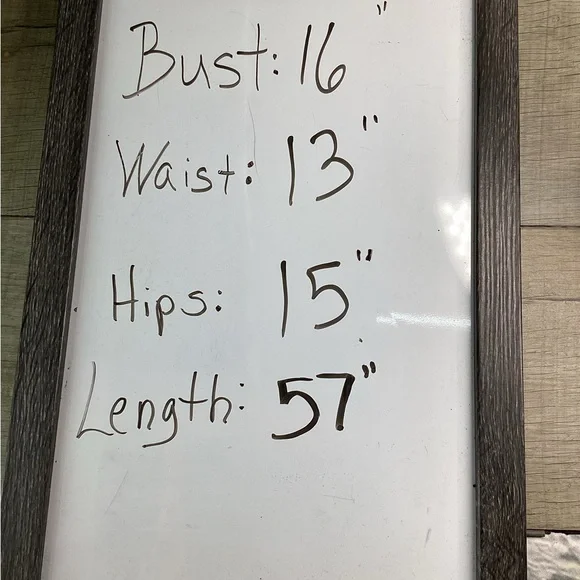 Bust: 16"
Waist: 13"
Hips: 15"
Length: 57"